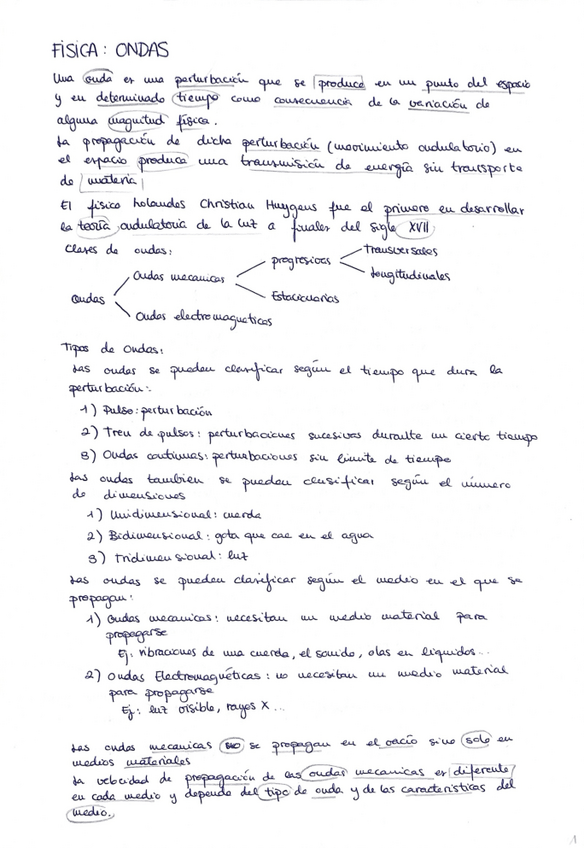 FÍSICA: ONDAS
Una onda es una perturbación que se produce en un punto del espacio
y en determinado tiempo como consecuencia de la variación de
alguna magnitud física.
La propagación de dicha perturbación (movimiento ondulatorio) en
el espacio produce una transmisión de energía sin transporte
de materia
El físico holandes Christian Huygens fue el primero en desarrollar
la teoría ondulatoria de la luz a finales del siglo XVII
Clases de ondas:
Transversales
progresivas
Longitudinales
Ondas mecanicas
Estacionarias
Ondas
Ondas electromagneticas
Tipos de Ondas:
Las ondas se pueden clasificar según el tiempo que dura la
perturbación:
1) Pulso: perturbación
2) Tren de pulsos: perturbaciones sucesivas durante un cierto tiempo
3) Ondas continuas: perturbaciones sin límite de tiempo
Las ondas tambien se pueden clasificar según el número
de dimensiones
1) Unidimensional: cuerda
2) Bidimensional: gota que cae en el agua
3) Tridimensional: luz
Las ondas se pueden clasificar según el medio en el que se
propagan:
1) Ondas mecanicas: necesitan un medio material para
propagarse
Ej: vibraciones de una cuerda, el sonido, olas en líquidos...
2) Ondas Electromagnéticas: no necesitan un medio material
para propagarse
Ej: luz visible, rayos X...
Las ondas mecanicas no se propagan en el vacío sino solo en
medios materiales
La velocidad de propagación de las ondas mecanicas es diferente
en cada medio y depende del tipo de onda y de las características del
medio.
1